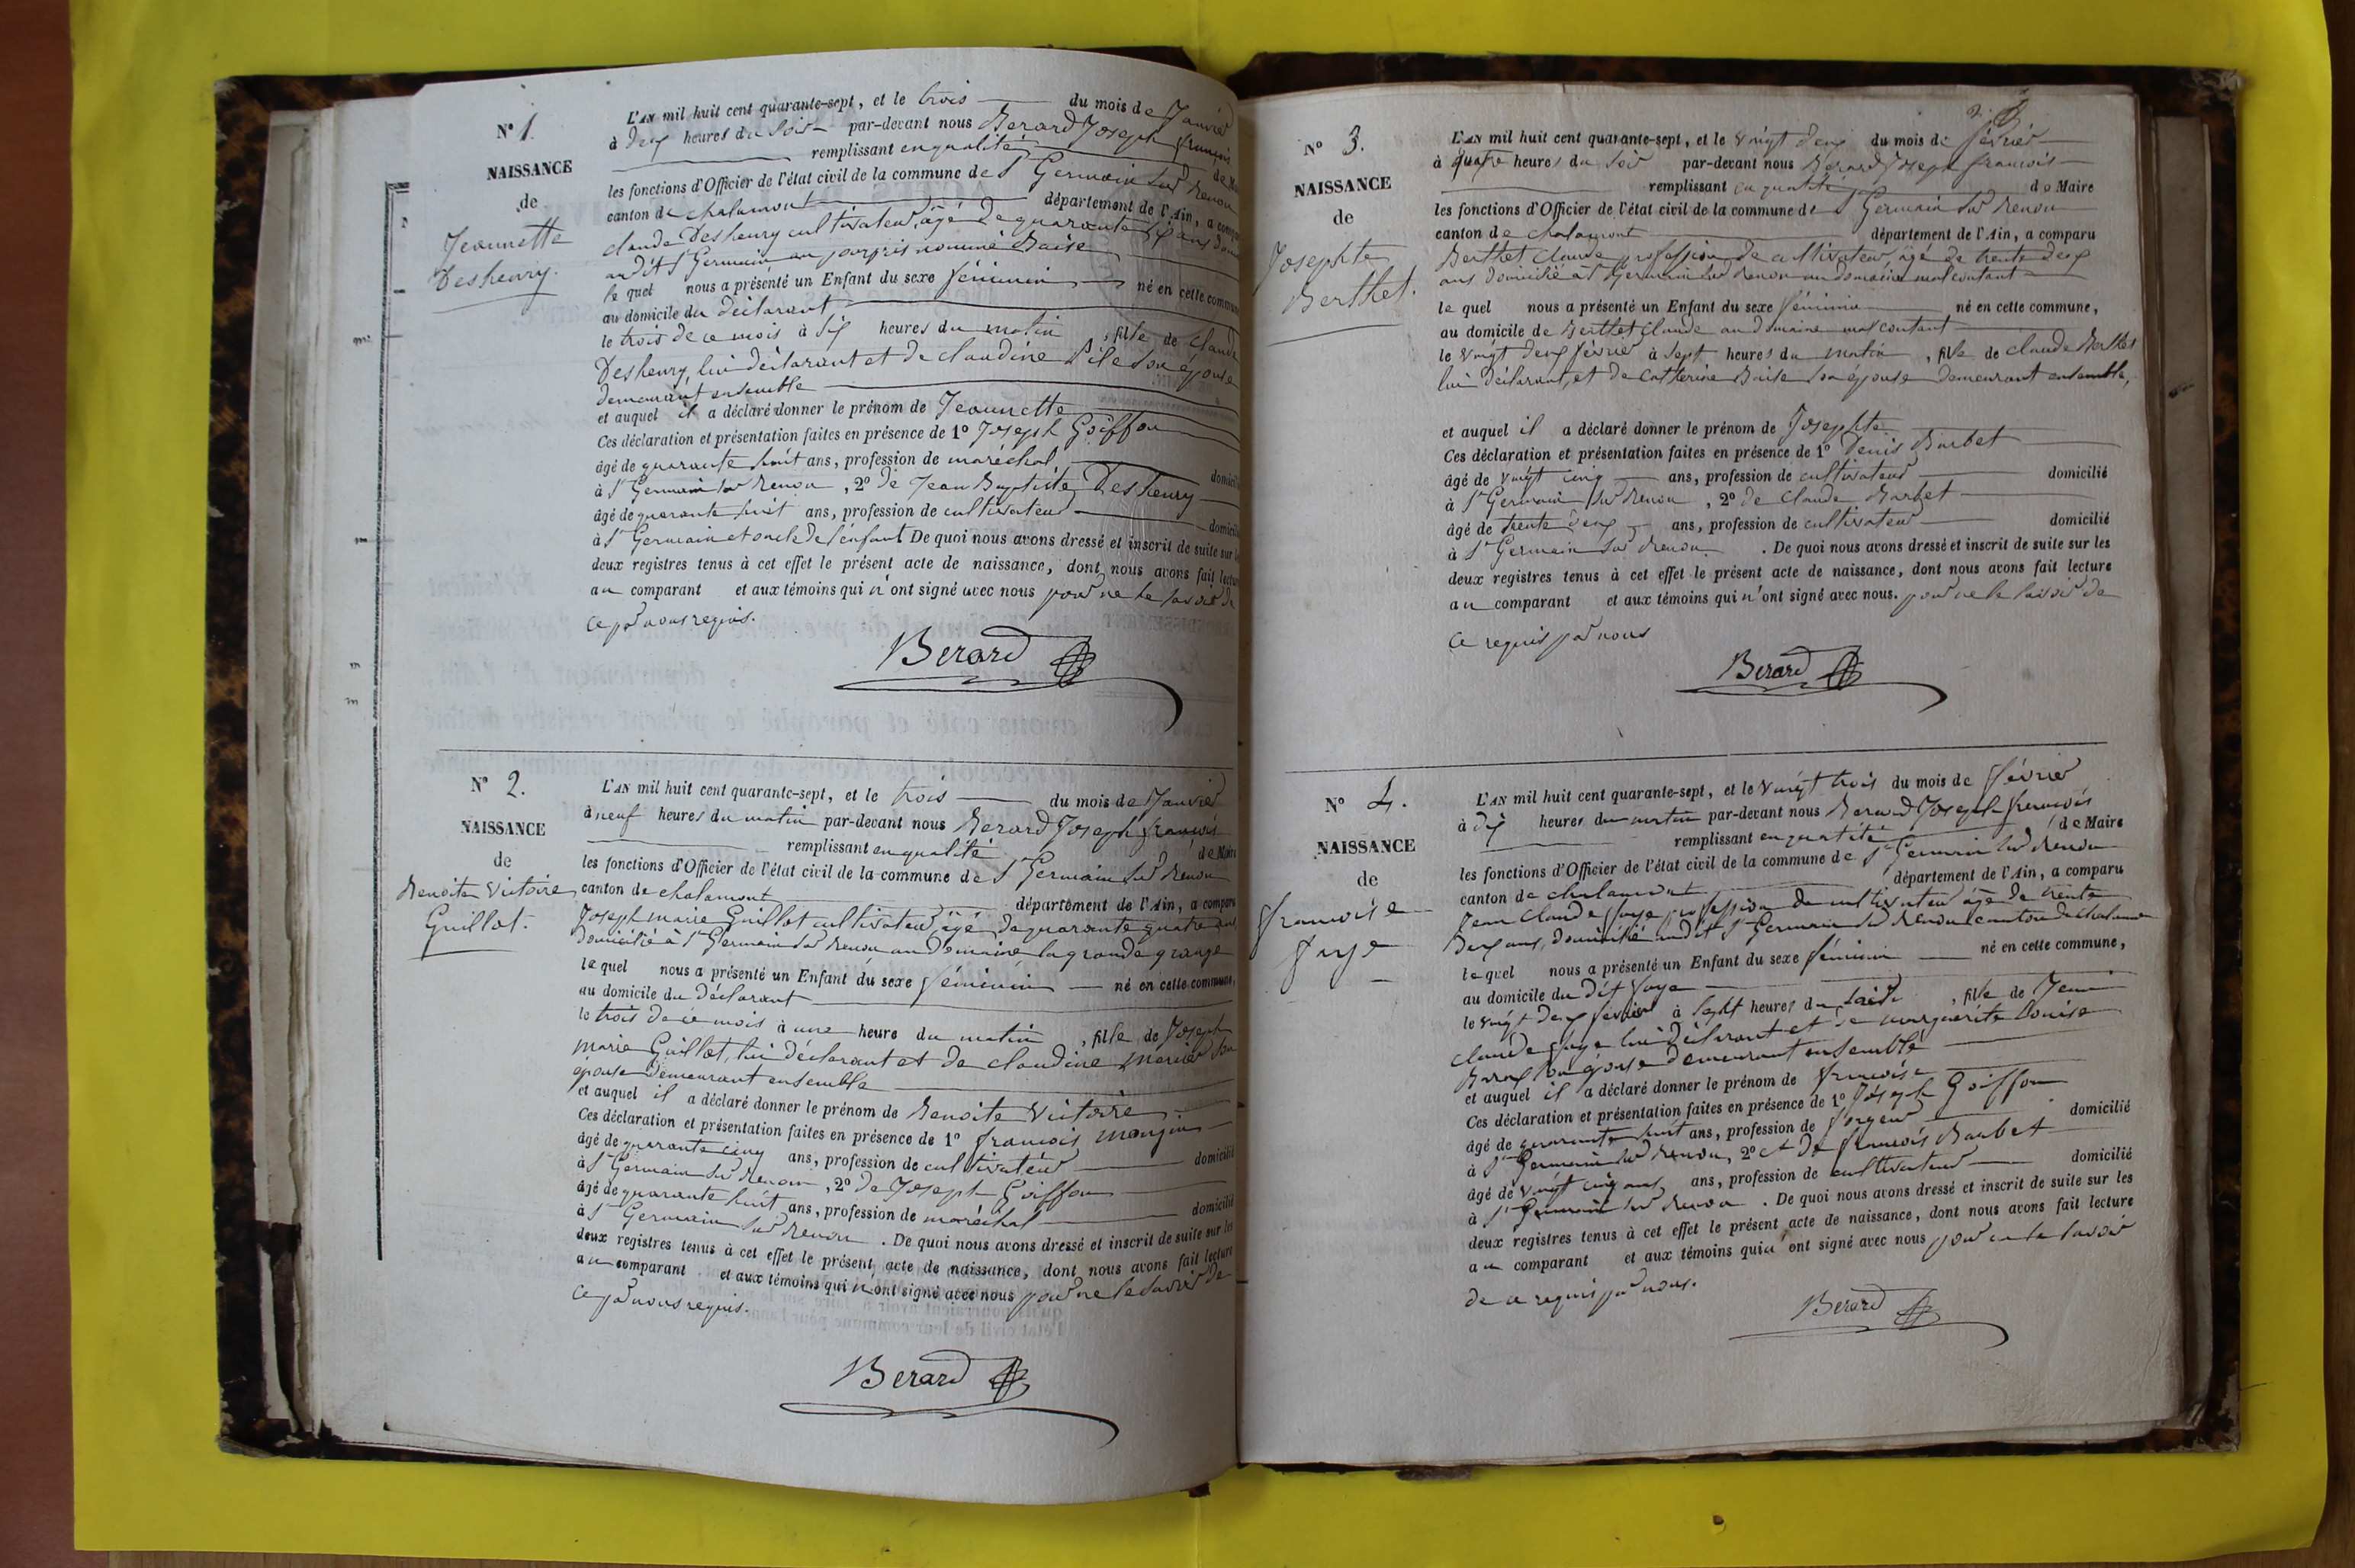 N° 1.
NAISSANCE
de
Jeannette
Desheury.
L'AN mil huit cent quarante-sept, et le trois du mois de Janvier
à deux heures du soir par-devant nous Berard Joseph françois
remplissant en qualité de
les fonctions d'Officier de l'état civil de la commune de St Germain sur renon
canton de chalamont département de l'Ain, a comparu
claude Desheury cultivateur, âgé de quarante six ans
audit St Germain au pourpris nommé Baise
le quel nous a présenté un Enfant du sexe féminin né en cette commune
au domicile du déclarant
le trois de ce mois à six heures du matin, fille de claude
Desheury, lui déclarant et de claudine son épouse
demeurant ensemble
et auquel il a déclaré donner le prénom de Jeannette
Ces déclaration et présentation faites en présence de 1° Joseph Goiffon
âgé de quarante huit ans, profession de maréchal
à St Germain sur renon, 2° de Jean Baptiste Desheury
âgé de quarante huit ans, profession de cultivateur
à St Germain et oncle de l'enfant De quoi nous avons dressé et inscrit de suite sur les
deux registres tenus à cet effet le présent acte de naissance, dont nous avons fait lecture
au comparant et aux témoins qui n'ont signé avec nous pour ne le savoir de
ce par nous requis.
Berard
N° 2.
NAISSANCE
de
Benoite Victoire
Guillot.
L'AN mil huit cent quarante-sept, et le trois du mois de Janvier
à neuf heures du matin par-devant nous Berard Joseph françois
remplissant en qualité de Maire
les fonctions d'Officier de l'état civil de la commune de St Germain sur renon
canton de chalamont département de l'Ain, a comparu
Joseph marie Guillot cultivateur, âgé de quarante quatre ans
domicilié à St Germain sur renon au domaine la grande grange
le quel nous a présenté un Enfant du sexe féminin né en cette commune,
au domicile du déclarant
le trois de ce mois à une heure du matin, fille de Joseph
marie Guillot, lui déclarant et de claudine son
épouse demeurant ensemble
et auquel il a déclaré donner le prénom de Benoite Victoire
Ces déclaration et présentation faites en présence de 1° françois mangin
âgé de quarante cinq ans, profession de cultivateur domicilié
à St Germain sur renon, 2° de Joseph Goiffon
âgé de quarante huit ans, profession de maréchal domicilié
à St Germain sur renon. De quoi nous avons dressé et inscrit de suite sur les
deux registres tenus à cet effet le présent acte de naissance, dont nous avons fait lecture
au comparant et aux témoins qui n'ont signé avec nous pour ne le savoir de
ce par nous requis.
Berard
N° 3.
NAISSANCE
de
Josephte
Berthet.
L'AN mil huit cent quarante-sept, et le vingt deux du mois de février
à quatre heures du soir par-devant nous Berard Joseph francois
remplissant en qualité de Maire
les fonctions d'Officier de l'état civil de la commune de St Germain sur renon
canton de chalamont département de l'Ain, a comparu
Berthet claude profession de cultivateur, âgé de trente deux
ans domicilié à St Germain sur renon au domaine malcontant
le quel nous a présenté un Enfant du sexe féminin né en cette commune,
au domicile de Berthet claude au domaine malcontant
le vingt deux février à sept heures du matin, fille de claude Berthet
lui déclarant, et de catherine Baise son épouse demeurant ensemble,
et auquel il a déclaré donner le prénom de Josephte
Ces déclaration et présentation faites en présence de 1° Denis Barbet
âgé de vingt cinq ans, profession de cultivateur domicilié
à St Germain sur renon, 2° de claude Barbet
âgé de trente deux ans, profession de cultivateur domicilié
à St Germain sur renon. De quoi nous avons dressé et inscrit de suite sur les
deux registres tenus à cet effet le présent acte de naissance, dont nous avons fait lecture
au comparant et aux témoins qui n'ont signé avec nous. pour ne le savoir de
ce requis par nous
Berard
N° 4.
NAISSANCE
de
francoise
faye
L'AN mil huit cent quarante-sept, et le vingt trois du mois de février
à dix heures du matin par-devant nous Berard Joseph francois
remplissant en qualité de Maire
les fonctions d'Officier de l'état civil de la commune de St Germain sur renon
canton de chalamont département de l'Ain, a comparu
Jean claude faye profession de cultivateur âgé de trente
deux ans, domicilié audit St Germain sur renon canton de chalamon
le quel nous a présenté un Enfant du sexe féminin né en cette commune,
au domicile du dit faye
le vingt deux février à sept heures du soir, fille de Jean
claude faye lui déclarant et de marguerite Louise
son épouse demeurant ensemble
et auquel il a déclaré donner le prénom de francoise
Ces déclaration et présentation faites en présence de 1° Joseph Goiffon
âgé de quarante huit ans, profession de forgeur domicilié
à St Germain sur renon, 2° et de francois Barbet
âgé de vingt cinq ans ans, profession de cultivateur domicilié
à St Germain sur renon. De quoi nous avons dressé et inscrit de suite sur les
deux registres tenus à cet effet le présent acte de naissance, dont nous avons fait lecture
au comparant et aux témoins qui n'ont signé avec nous pour ne le savoir
de ce requis par nous.
Berard